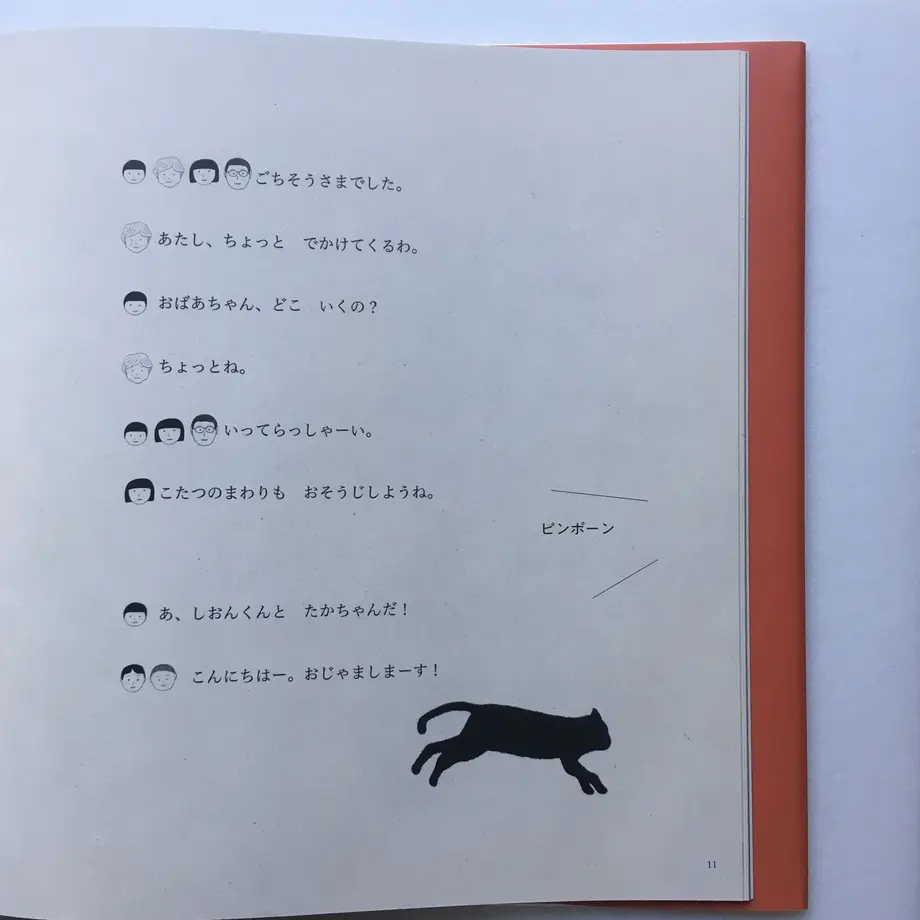 ごちそうさまでした。
あたし、ちょっと　でかけてくるわ。
おばあちゃん、どこ　いくの？
ちょっとね。
いってらっしゃーい。
こたつのまわりも　おそうじしようね。
ピンポーン
あ、しおんくんと　たかちゃんだ！
こんにちはー。おじゃましまーす！
11